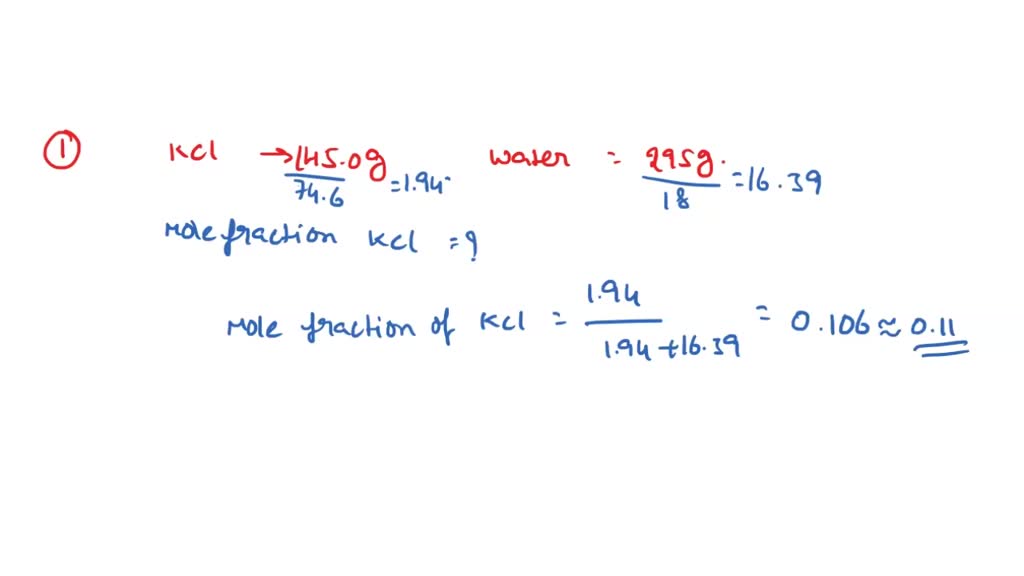 ① KCl → 145.0g / 74.6 = 1.94 water = 295g. / 18 = 16.39
Mole fraction KCl = ?
Mole fraction of KCl = 1.94 / 1.94 + 16.39 = 0.106 ≈ 0.11